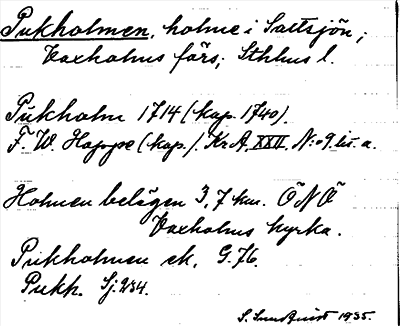 Pukholmen, holme i Saltsjön;
Vaxholms förs; Sthlms l.
Pukholm 1714 (kop. 1740).
F. W. Hoppe (kop.). KrA, XXII, N:o 9. lit. a.
Holmen belägen 3,7 km. ÖNÖ
Vaxholms kyrka.
Pukholmen ek. G. 76.
Pukh. Sj. 234.
S. Sundquist 1935.